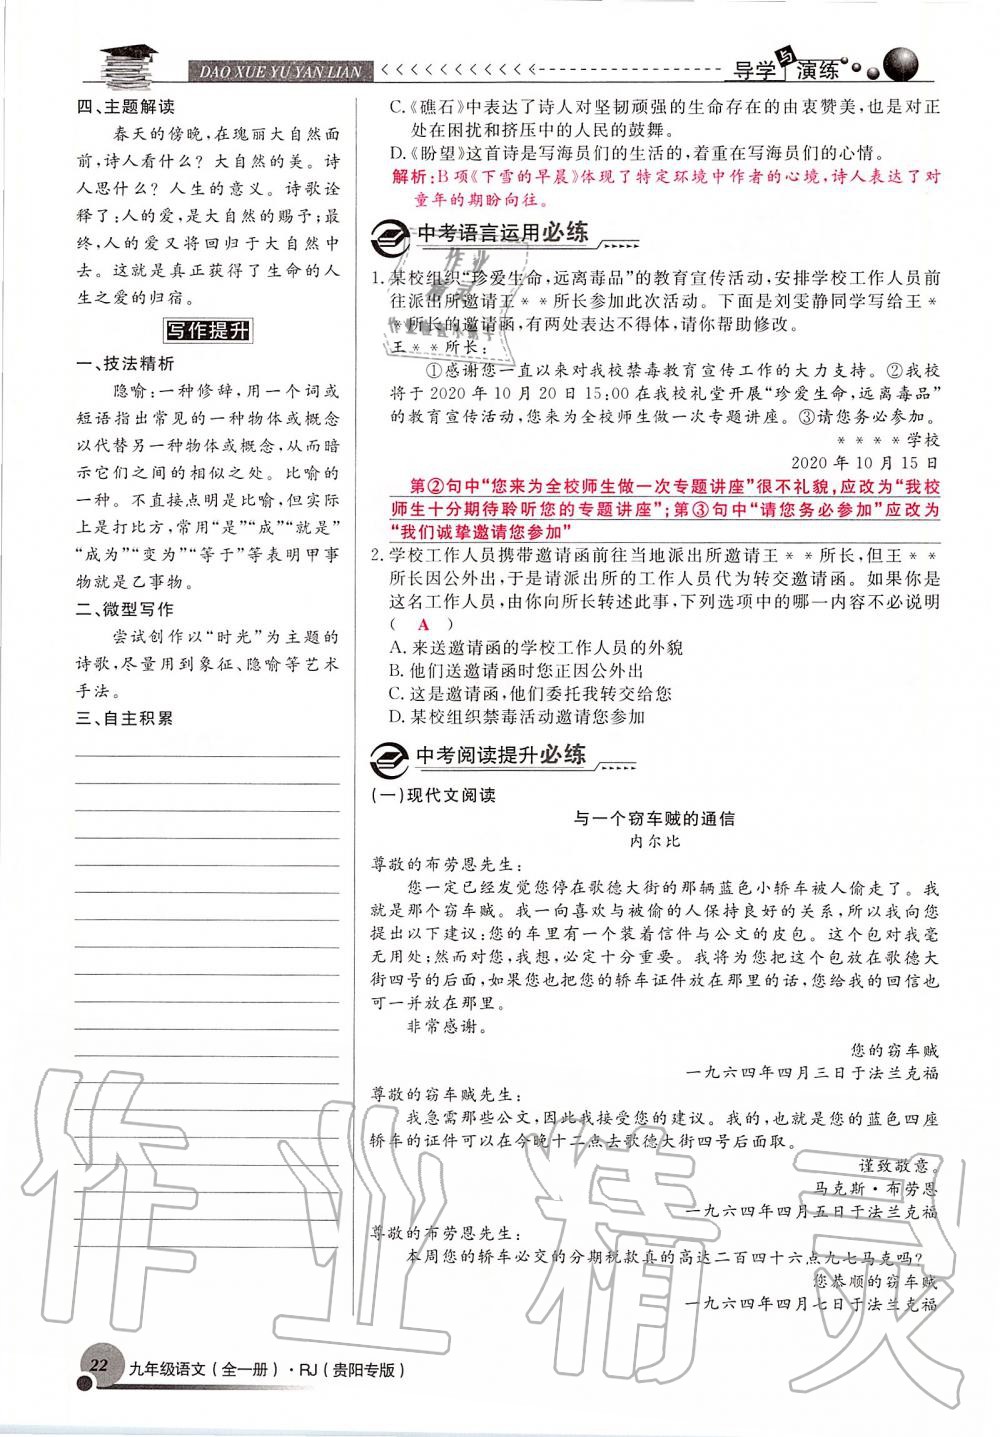 DAO XUE YU YAN LIAN
导学与演练
四、主题解读
春天的傍晚,在瑰丽大自然面
前,诗人看什么? 大自然的美。诗
人思什么? 人生的意义。诗歌诠
释了:人的爱,是大自然的赐予;最
终,人的爱又将回归于大自然中
去。这就是真正获得了生命的人
生之爱的归宿。
写作提升
一、技法精析
隐喻:一种修辞,用一个词或
短语指出常见的一种物体或概念
以代替另一种物体或概念,从而暗
示它们之间的相似之处。比喻的
一种。不直接点明是比喻,但实际
上是打比方,常用“是”“成”“就是”
“成为”“变为”“等于”等表明甲事
物就是乙事物。
二、微型写作
尝试创作以“时光”为主题的
诗歌,尽量用到象征、隐喻等艺术
手法。
三、自主积累
C.《礁石》中表达了诗人对坚韧顽强的生命存在的由衷赞美,也是对正
处在困扰和挤压中的人民的鼓舞。
D.《盼望》这首诗是写海员们的生活的,着重在写海员们的心情。
解析:B项《下雪的早晨》体现了特定环境中作者的心境,诗人表达了对
童年的期盼向往。
中考语言运用必练
1. 某校组织“珍爱生命,远离毒品”的教育宣传活动,安排学校工作人员前
往派出所邀请王**所长参加此次活动。下面是刘雯静同学写给王*
*所长的邀请函,有两处表达不得体,请你帮助修改。
王**所长:
①感谢您一直以来对我校禁毒教育宣传工作的大力支持。②我校
将于 2020 年 10 月 20 日 15:00 在我校礼堂开展“珍爱生命,远离毒品”
的教育宣传活动,您来为全校师生做一次专题讲座。③请您务必参加。
****学校
2020 年 10 月 15 日
第②句中“您来为全校师生做一次专题讲座”很不礼貌,应改为“我校
师生十分期待聆听您的专题讲座”;第③句中“请您务必参加”应改为
“我们诚挚邀请您参加”
2. 学校工作人员携带邀请函前往当地派出所邀请王**所长,但王**
所长因公外出,于是请派出所的工作人员代为转交邀请函。如果你是
这名工作人员,由你向所长转述此事,下列选项中的哪一内容不必说明
( A )
A. 来送邀请函的学校工作人员的外貌
B. 他们送邀请函时您正因公外出
C. 这是邀请函,他们委托我转交给您
D. 某校组织禁毒活动邀请您参加
中考阅读提升必练
(一)现代文阅读
与一个窃车贼的通信
内尔比
尊敬的布劳恩先生:
您一定已经发觉您停在歌德大街的那辆蓝色小轿车被人偷走了。我
就是那个窃车贼。我一向喜欢与被偷的人保持良好的关系,所以我向您
提出以下建议:您的车里有一个装着信件与公文的皮包。这个包对我毫
无用处;然而对您,我想,必定十分重要。我将为您把这个包放在歌德大
街四号的后面,如果您也把您的轿车证件放在那里的话,您给我的回信也
可一并放在那里。
非常感谢。
您的窃车贼
一九六四年四月三日于法兰克福
尊敬的窃车贼先生:
我急需那些公文,因此我接受您的建议。我的,也就是您的蓝色四座
轿车的证件可以在今晚十二点去歌德大街四号后面取。
谨致敬意。
马克斯·布劳恩
一九六四年四月五日于法兰克福
尊敬的布劳恩先生:
本周您的轿车必交的分期税款真的高达二百四十六点九七马克吗?
您恭顺的窃车贼
一九六四年四月七日于法兰克福
22 九年级语文(全一册)·RJ(贵阳专版)
作业精灵